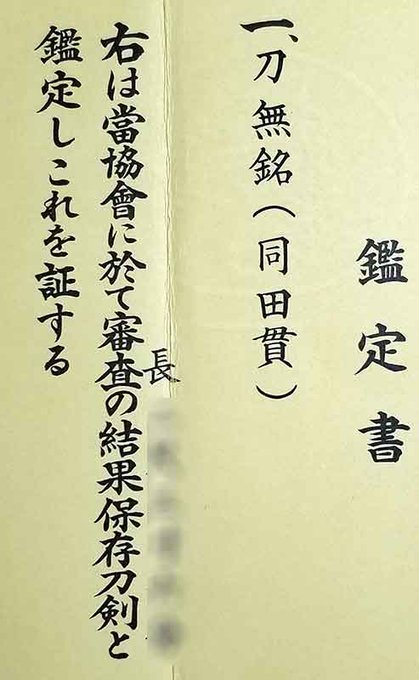 鑑定書
一、刀無銘(同田貫)
長
右は當協會に於て審査の結果保存刀剣と
鑑定しこれを証する